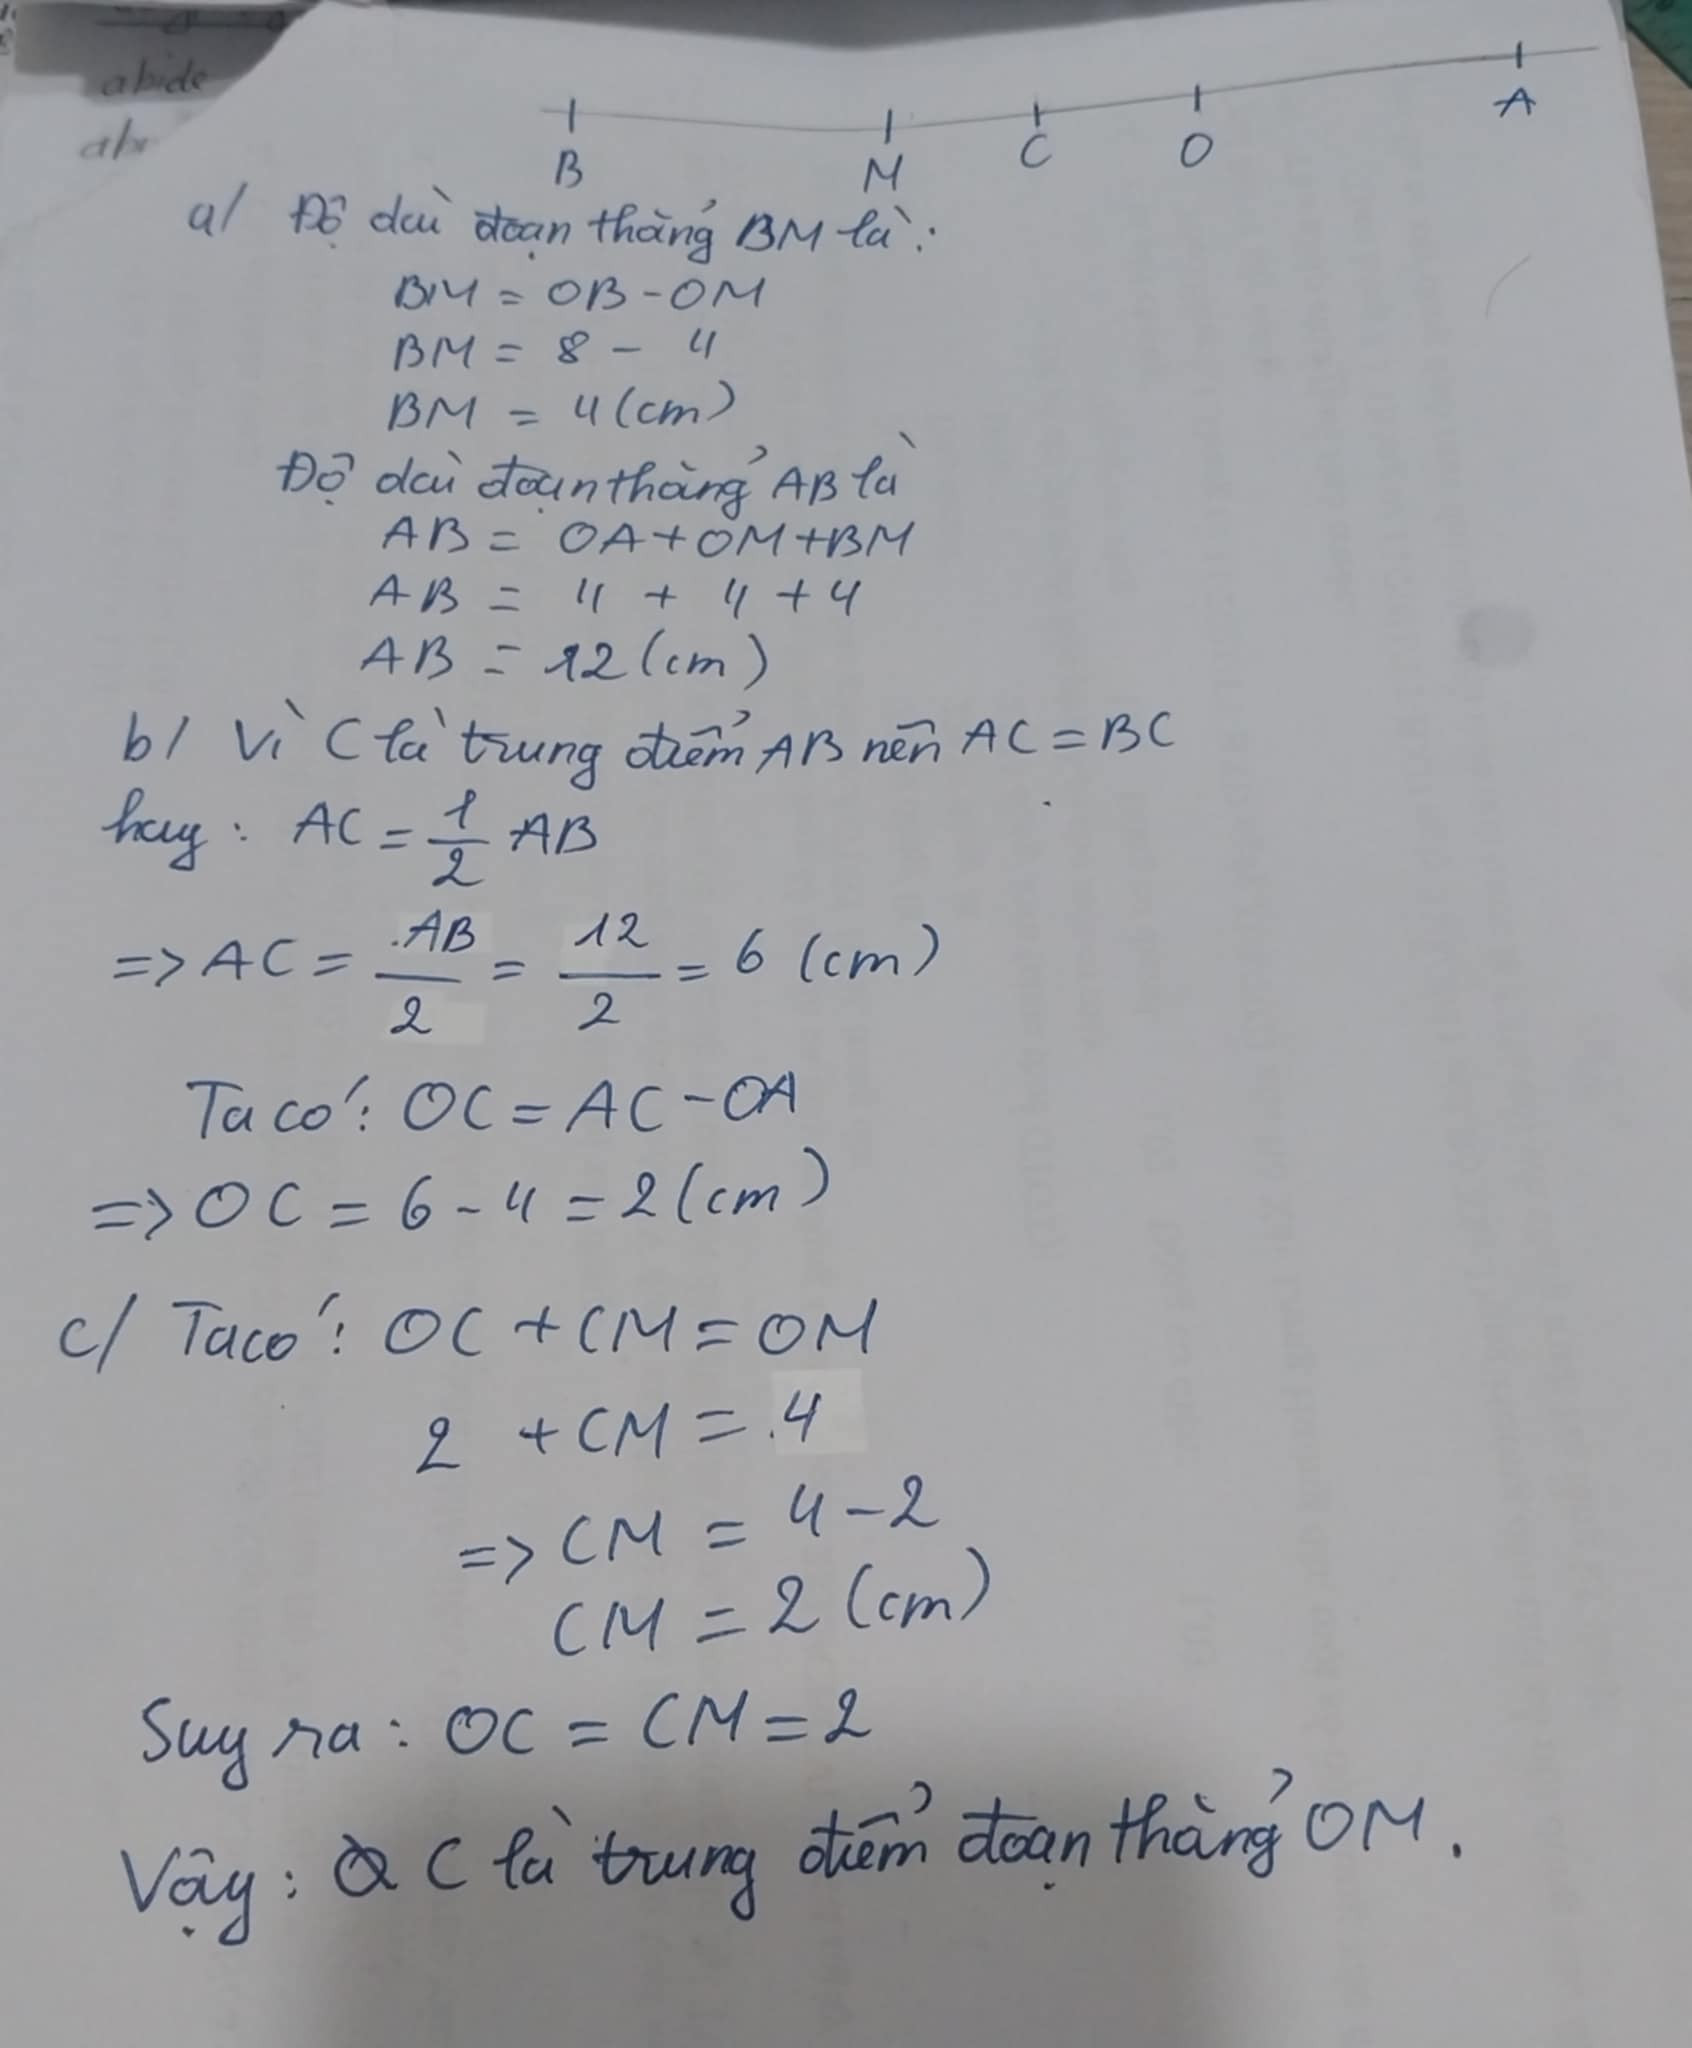 abide
B M C O A
a/ Độ dài đoạn thẳng BM là:
BM = OB - OM
BM = 8 - 4
BM = 4 (cm)
Độ dài đoạn thẳng AB là
AB = OA + OM + BM
AB = 4 + 4 + 4
AB = 12 (cm)
b/ Vì C là trung điểm AB nên AC = BC
hay: AC = 1/2 AB
=> AC = AB/2 = 12/2 = 6 (cm)
Ta có: OC = AC - OA
=> OC = 6 - 4 = 2 (cm)
c/ Ta có: OC + CM = OM
2 + CM = 4
=> CM = 4 - 2
CM = 2 (cm)
Suy ra: OC = CM = 2
Vậy: C là trung điểm đoạn thẳng OM.